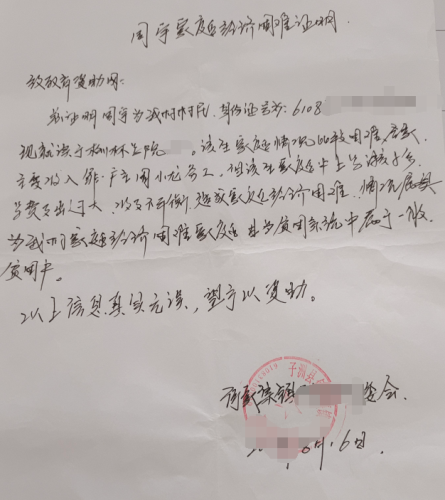 周宇家庭经济困难证明.
放教育资助网:
兹证明周宇为我村村民,身份证号为:6108
现就读于榆林学院 。该生家庭情况比较困难,家里
主要收入靠 务工,但该生家庭中上学孩子多
学费支出过大,收支不平衡,造成家庭经济困难,情况属实
为我们家庭经济困难家庭 且为贫困系统中属于一般
贫困户。
以上信息真实无误,望予以资助。
子洲县
镇 委会.
04月16日.